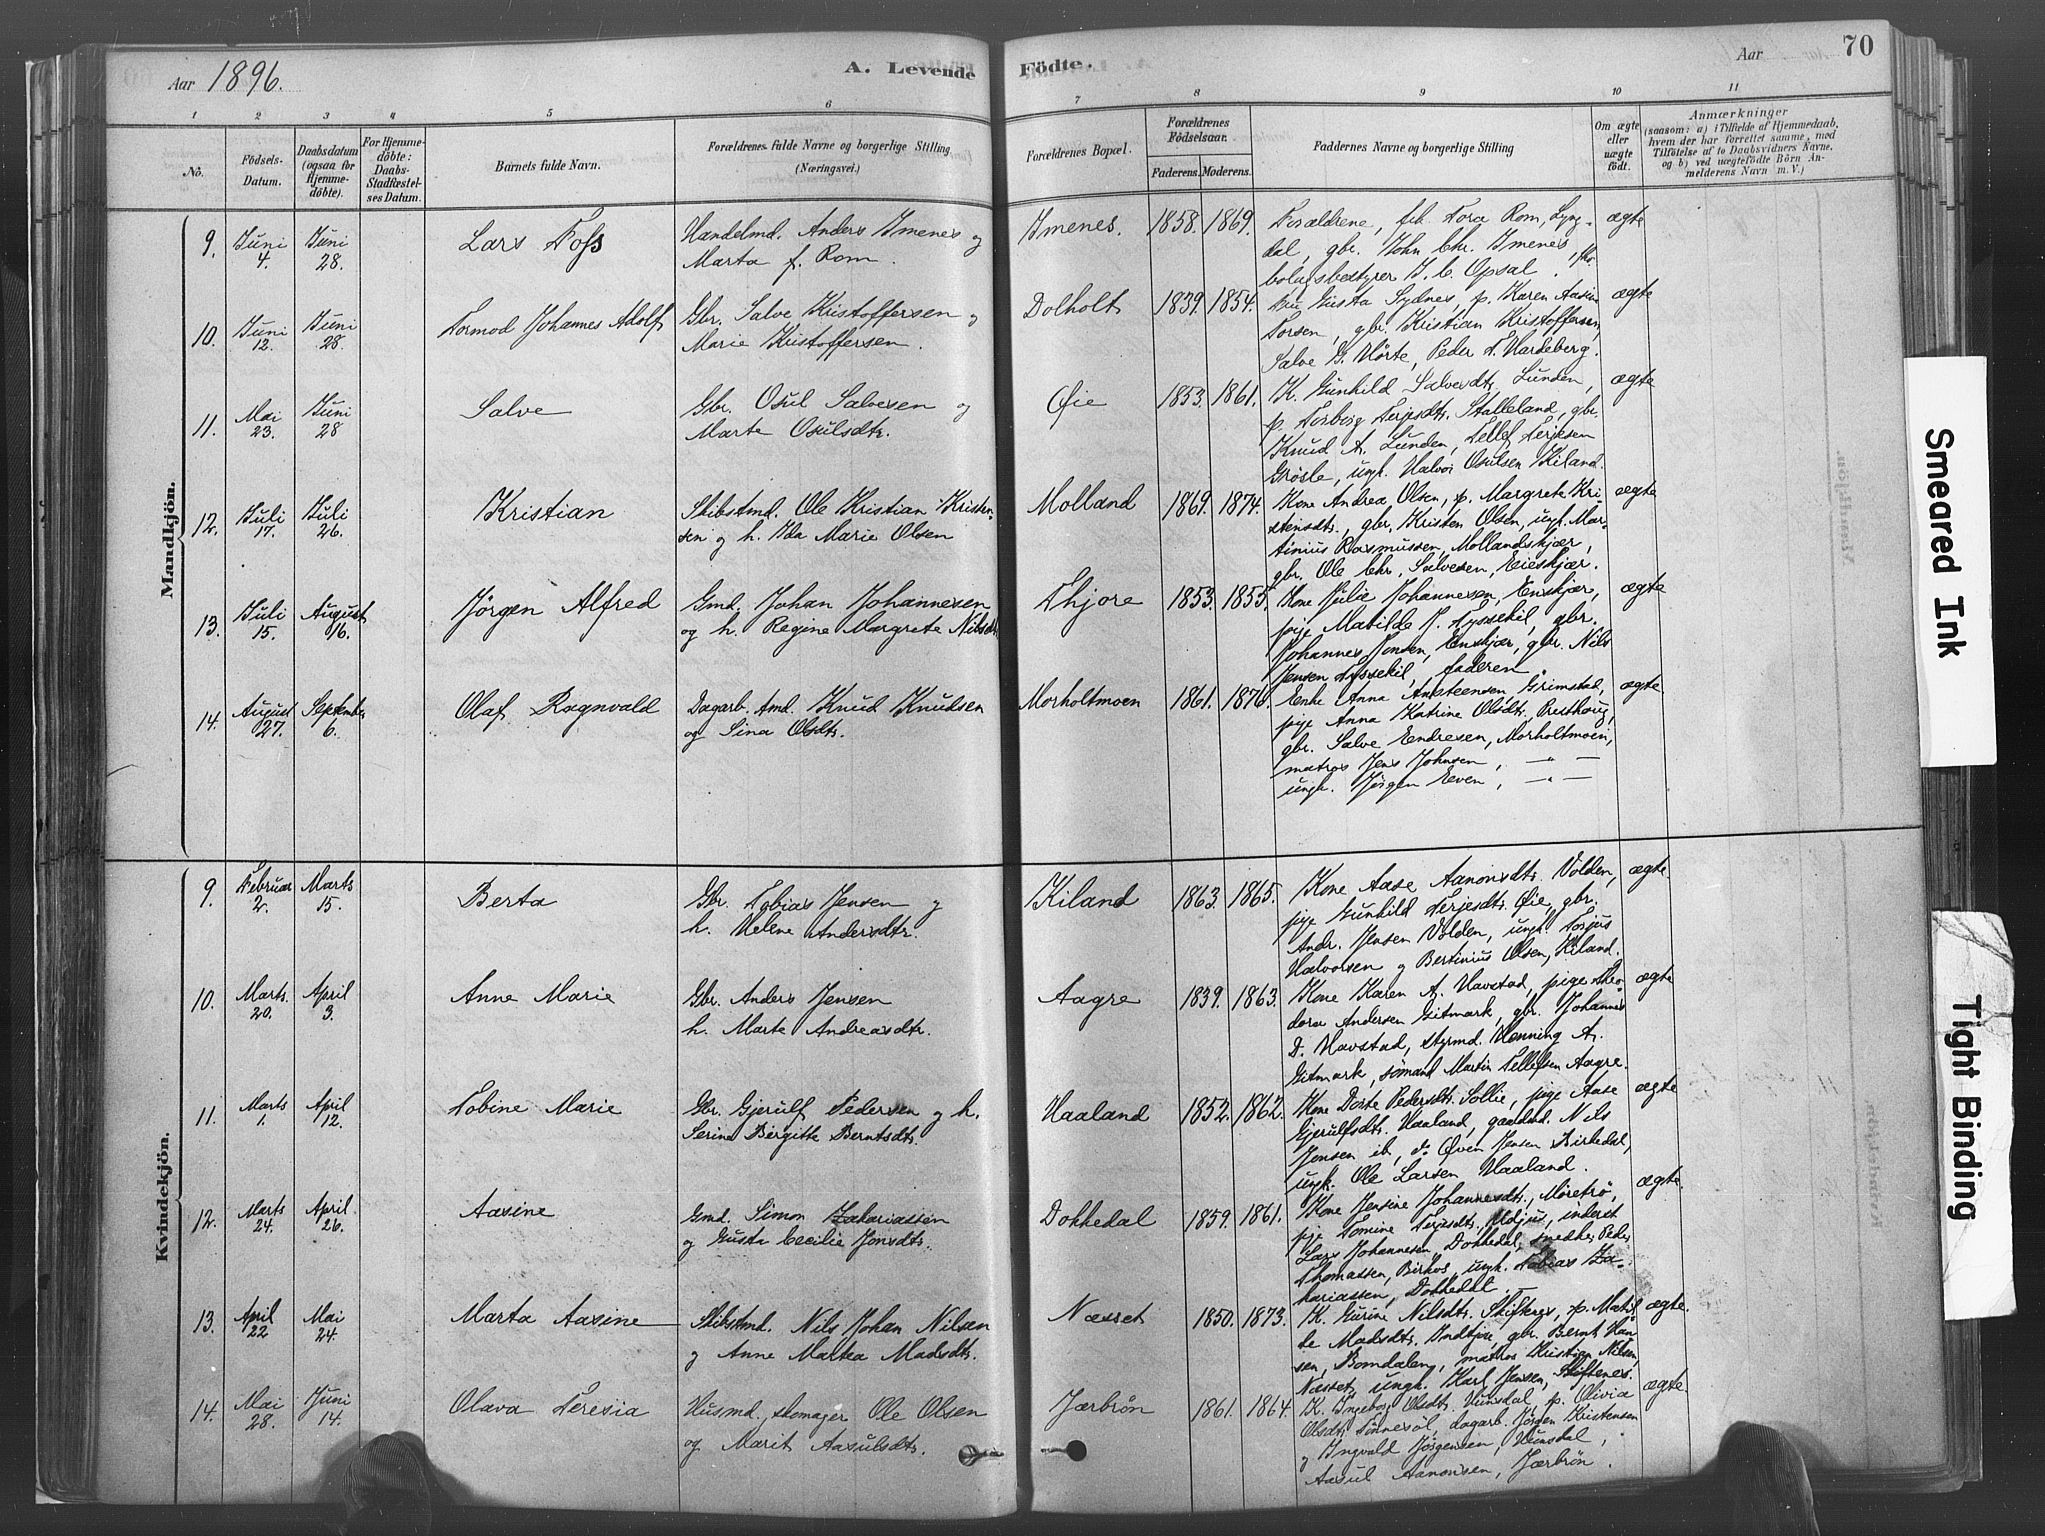 Aar 1896.
A. Levende
Födte.
Aar
70
1 2 3 4 5 6 7 8 9 10 11
No.
Födsels-
Datum.
Daabsdatum
(ogsaa for
Hjemme-
döbte).
For Hjemme-
döbte:
Daabs-
Stadfæstel-
ses Datum.
Barnets fulde Navn.
Forældrenes fulde Navne og borgerlige Stilling
(Næringsvei.)
Forældrenes Bopæl.
Forældrenes
Födselsaar.
Faderens. Moderens.
Faddernes Navne og borgerlige Stilling
Om ægte
eller
uægte
födt.
Anmærkninger
(saasom: a) i Tilfælde af Hjemmedaab,
hvem der har forrettet samme, med
Tilföielse af to Daabsvidners Navne,
og b) ved uægtefödte Börn An-
melderens Navn m. V.)
Mandkjön.
9. Juni 4. Juni 28. Lars Foss
Handelmd. Anders Imenes og
Marta f. Rom.
Imenes. 1858. 1869.
Forældrene, frk. Tora Rom, Lyng-
dal, gbr. John Chr. Imenes,
bolagsbestyrer J. C. Opsal.
ægte
10. Juni 12. Juni 28. Tormod Johannes Adolf
Gbr. Salve Kristoffersen og
Marie Kristoffersen.
Dolholt 1839. 1854.
Gusta Sydnes, p. Karen Aasine
Torsen, gbr. Kristian Kristoffersen,
Salve G. Hörte, Peder T. Hardeberg.
ægte
11. Mai 23. Juni 28 Salve
Gbr. Osul Salvesen og
Marte Osulsdtr.
Øie 1853. 1861.
K. Gunhild Salvesdtr. Lunden,
p. Torborg Terjesdtr. Stalleland, gbr.
Knud A. Lunden, Tellef Terjesen
Grøsle, ungk. Halvor Osulsen Kiland.
ægte
12. Juli 17. Juli 26. Kristian
Skibstmd. Ole Kristian Kristen-
sen og h. Ida Marie Olsen
Molland 1869. 1874.
Kone Andrea Olsen, p. Margrete Kri-
stensdtr., gbr. Kristen Olsen, ungk. Mar-
tinius Rasmussen, Mollandskjær,
gbr. Ole Chr. Salvesen, Eieskjær.
ægte
13. Juli 15. August 16. Jørgen Alfred
Gmd. Johan Johannesen
og h. Regine Margrete Nilsdtr.
Thjore 1853. 1855.
Kone Julie Johannesen, Enskjær,
pige Matilde J. Tyssekil, gbr.
Johannes Jonsen, Enskjær, gbr. Nils
Jensen Tyssekil, faderen.
ægte
14. August 27. September 6. Olaf Ragnvald
Dagarb. Amd. Knud Knudsen
og Sina Olsdtr.
Morholtmoen 1861. 1876.
Enke Anna Anstensen, Grimstad,
pige Anna Katrine Olsdtr. Presthoug,
gbr. Salve Endresen, Morholtmoen,
matros Jens Johnsen, — " —
ungk. Jörgen Even, — " —
ægte
Kvindekjön.
9. Februar 2. Marts 15. Berta
Gbr. Tobias Jensen og
h. Helene Andersdtr.
Kiland 1863. 1865.
Kone Aase Aanonsdtr. Volden,
pige Gunhild Terjesdtr. Øie, gbr.
Andr. Jensen Volden, ungk. Torjus
Halvorsen og Bertinius Olsen, Kiland.
ægte
10. Marts. 20. April 3. Anne Marie
Gbr. Anders Jensen
h. Marte Andreasdtr.
Aagre 1839. 1863.
Kone Karen A. Havstad, pige Theo-
dora Andersen Gitmark, gbr. Johannes
D. Havstad, styrmd. Henning A.
Gitmark, sömand Martin Tellefsen Aagre.
ægte
11. Marts 1. April 12. Tobine Marie
Gbr. Gjerulf Pedersen og h.
Serine Birgitte Berntsdtr.
Haaland 1852. 1862.
Kone Dorte Pedersdtr. Sollie, pige Aase
Gjerulfsdtr. Haaland, gaardmd. Nils
Jensen ib., do Even Jensen Birkedal,
ungk. Ole Larsen Haaland.
ægte
12. Marts 24. April 26. Aasine
Gmd. Simon Zakariassen
og Gusta Cecilie Jonsdtr.
Dokkedal 1859. 1861.
Kone Jensine Johannesdtr. Møretrø,
pige Tomine Terjesdtr. Udjus, inderst
Lars Johannesen Dokkedal, snedker Peder
Thomassen, Birkos, ungk. Tobias Za-
hariassen, Dokkedal.
ægte.
13. April 22 Mai 24. Marta Aasine
Skibstmd. Nils Johan Nilsen
og Anne Martea Madsdtr.
Næsset 1850. 1873.
K. Gurine Nilsdtr. Skiftenes, p. Matil-
de Madsdtr. Indtjore, gbr. Bernt Han-
sen, Bomdalen, matros Kristian Nilsen,
Næsset, ungk. Karl Jensen, Skiftenes.
ægte.
14. Mai 28. Juni 14. Olava Teresia
Husmd. skomager Ole Olsen
og Marit Aasulsdtr.
Jærbrön 1861. 1864.
K. Ingeborg Olsdtr. Hunsdal, p. Olivia
Olsdtr. Tönnesöl, dagarb. Jörgen Kristensen
og Ingvald Jørgensen, Hunsdal,
Aasul Aanonsen, Jærbrön.
ægte
Smeared Ink
Tight Binding